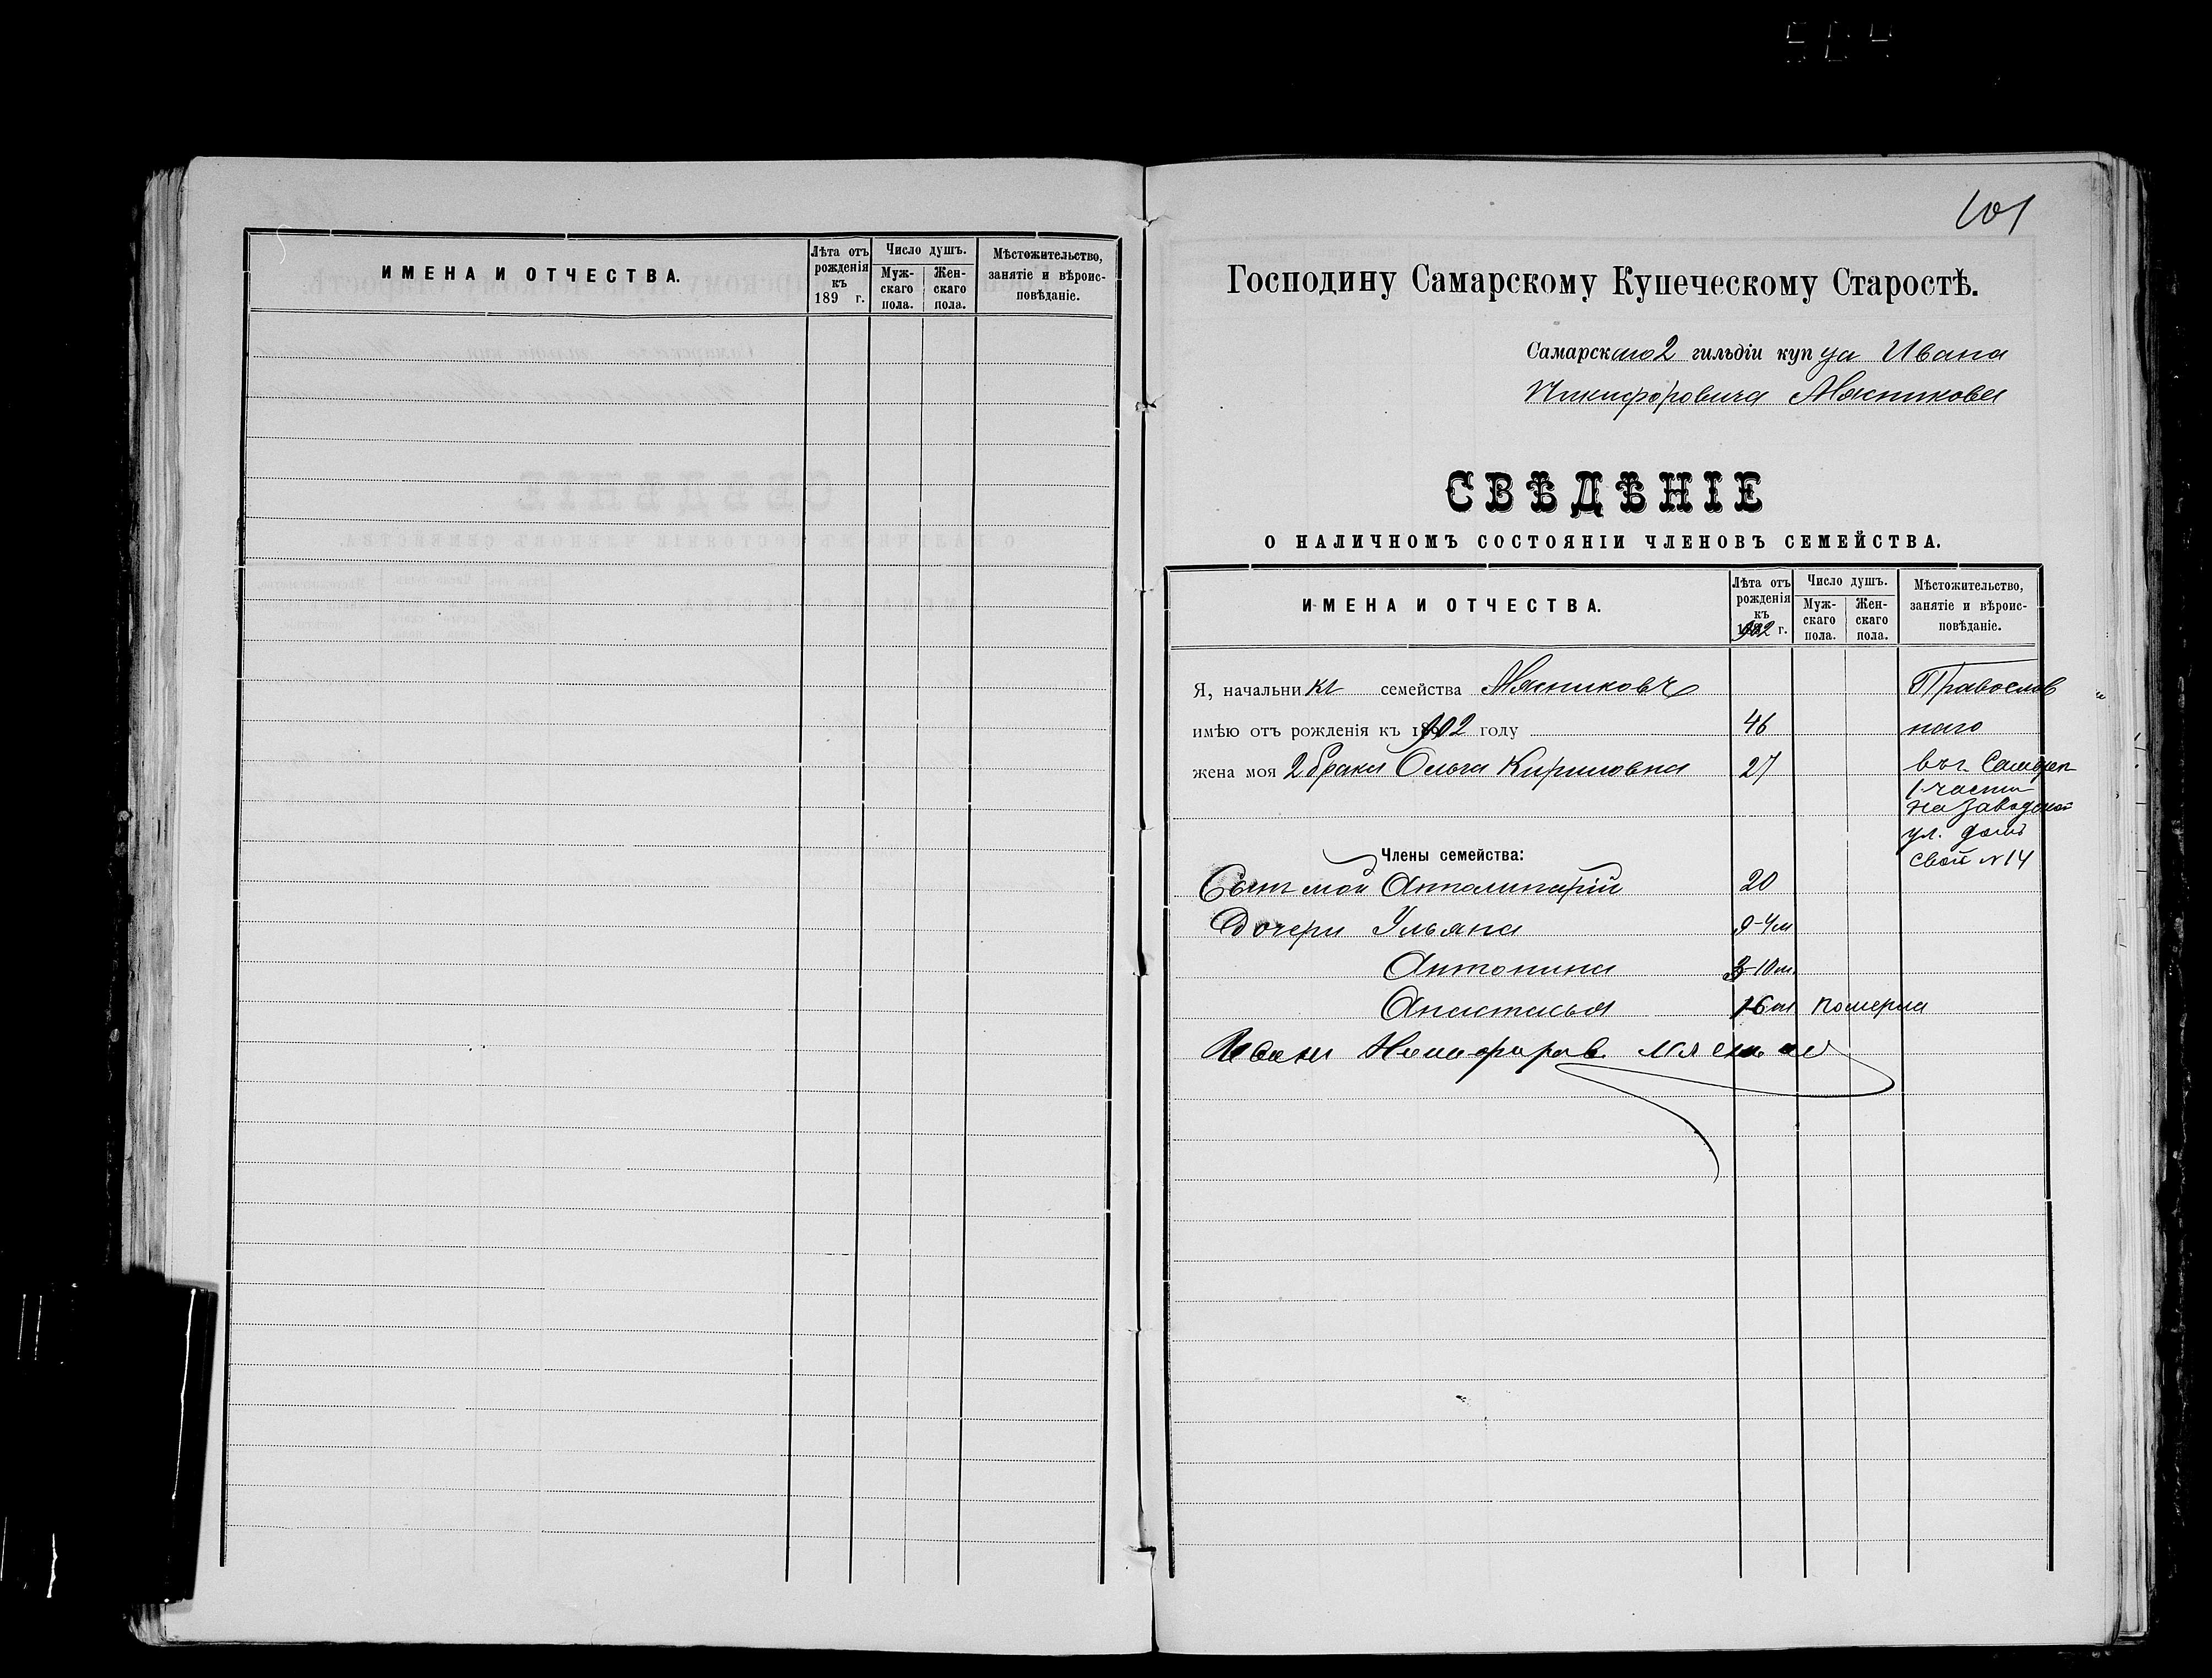 ИМЕНА И ОТЧЕСТВА.
Лѣта отъ рожденія къ 189 г.
Число душъ.
Мужскаго пола.
Женскаго пола.
Мѣстожительство, занятіе и вѣроисповѣданіе.
101
Господину Самарскому Купеческому Старостѣ.
Самарскаго 2 гильдіи купца Ивана
Никифоровича Мясникова
СВѢДѢНІЕ
О НАЛИЧНОМЪ СОСТОЯНІИ ЧЛЕНОВЪ СЕМЕЙСТВА.
ИМЕНА И ОТЧЕСТВА.
Лѣта отъ рожденія къ 1902 г.
Число душъ.
Мужскаго пола.
Женскаго пола.
Мѣстожительство, занятіе и вѣроисповѣданіе.
Я, начальникъ семейства Мясниковъ Православ
имѣю отъ рожденія къ 1902 году 46 наго
жена моя 2 брака Ольга Кириловна 27 въ г. Самаре
1 части
на Заводской
ул. домъ
свой №14
Члены семейства:
Сынъ мой Апполинарій 20
Дочери Ульяна 9-4м
Антонина 3-10м.
Анастасья 1-6м померла
Иван Никифоров